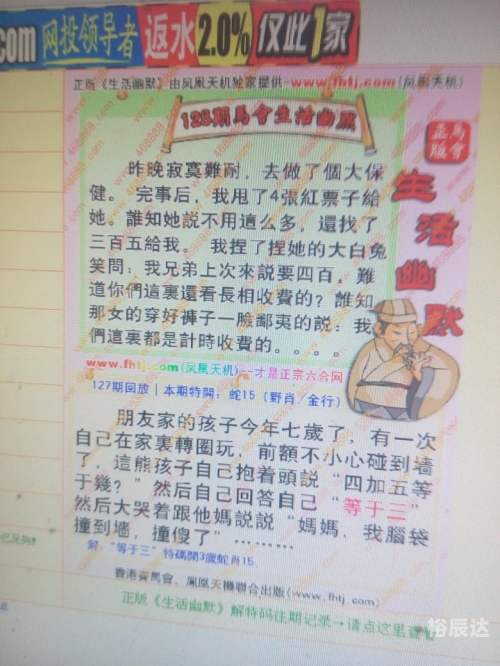 com 网投领导者 返水2.0% 仅此1家
正版《生活幽默》由凤凰天机独家提供-www.fhtj.com(凤凰天机)
128期馬會生活幽默
馬會
正版
生活幽默
昨晚寂寞難耐，去做了個大保
健。完事后，我甩了4張紅票子給
她。誰知她説不用這么多，還找了
三百五給我。我捏了捏她的大白兔
笑問：我兄弟上次來説要四百，難
道你們這裏還看長相收費的？誰知
那女的穿好褲子一臉鄙夷的説：我
們這裏都是計時收費的。。。。
www.fhtj.com(凤凰天机)--才是正宗六合网
127期回放|本期特開：蛇15（野肖/金行）
朋友家的孩子今年七歲了，有一次
自己在家裏轉圈玩，前額不小心碰到墻
了，這熊孩子自己抱着頭説“四加五等
于幾？”然后自己回答自己“等于三”
然后大哭着跟他媽説説“媽媽，我腦袋
撞到墻，撞傻了”………
解：“等于三”特碼開3歲蛇肖15
香港賽馬會、鳳凰天機聯合出版(www.fhtj.com)
正版《生活幽默》解特码往期记录→请点这里查看
已足夠!
裕辰达